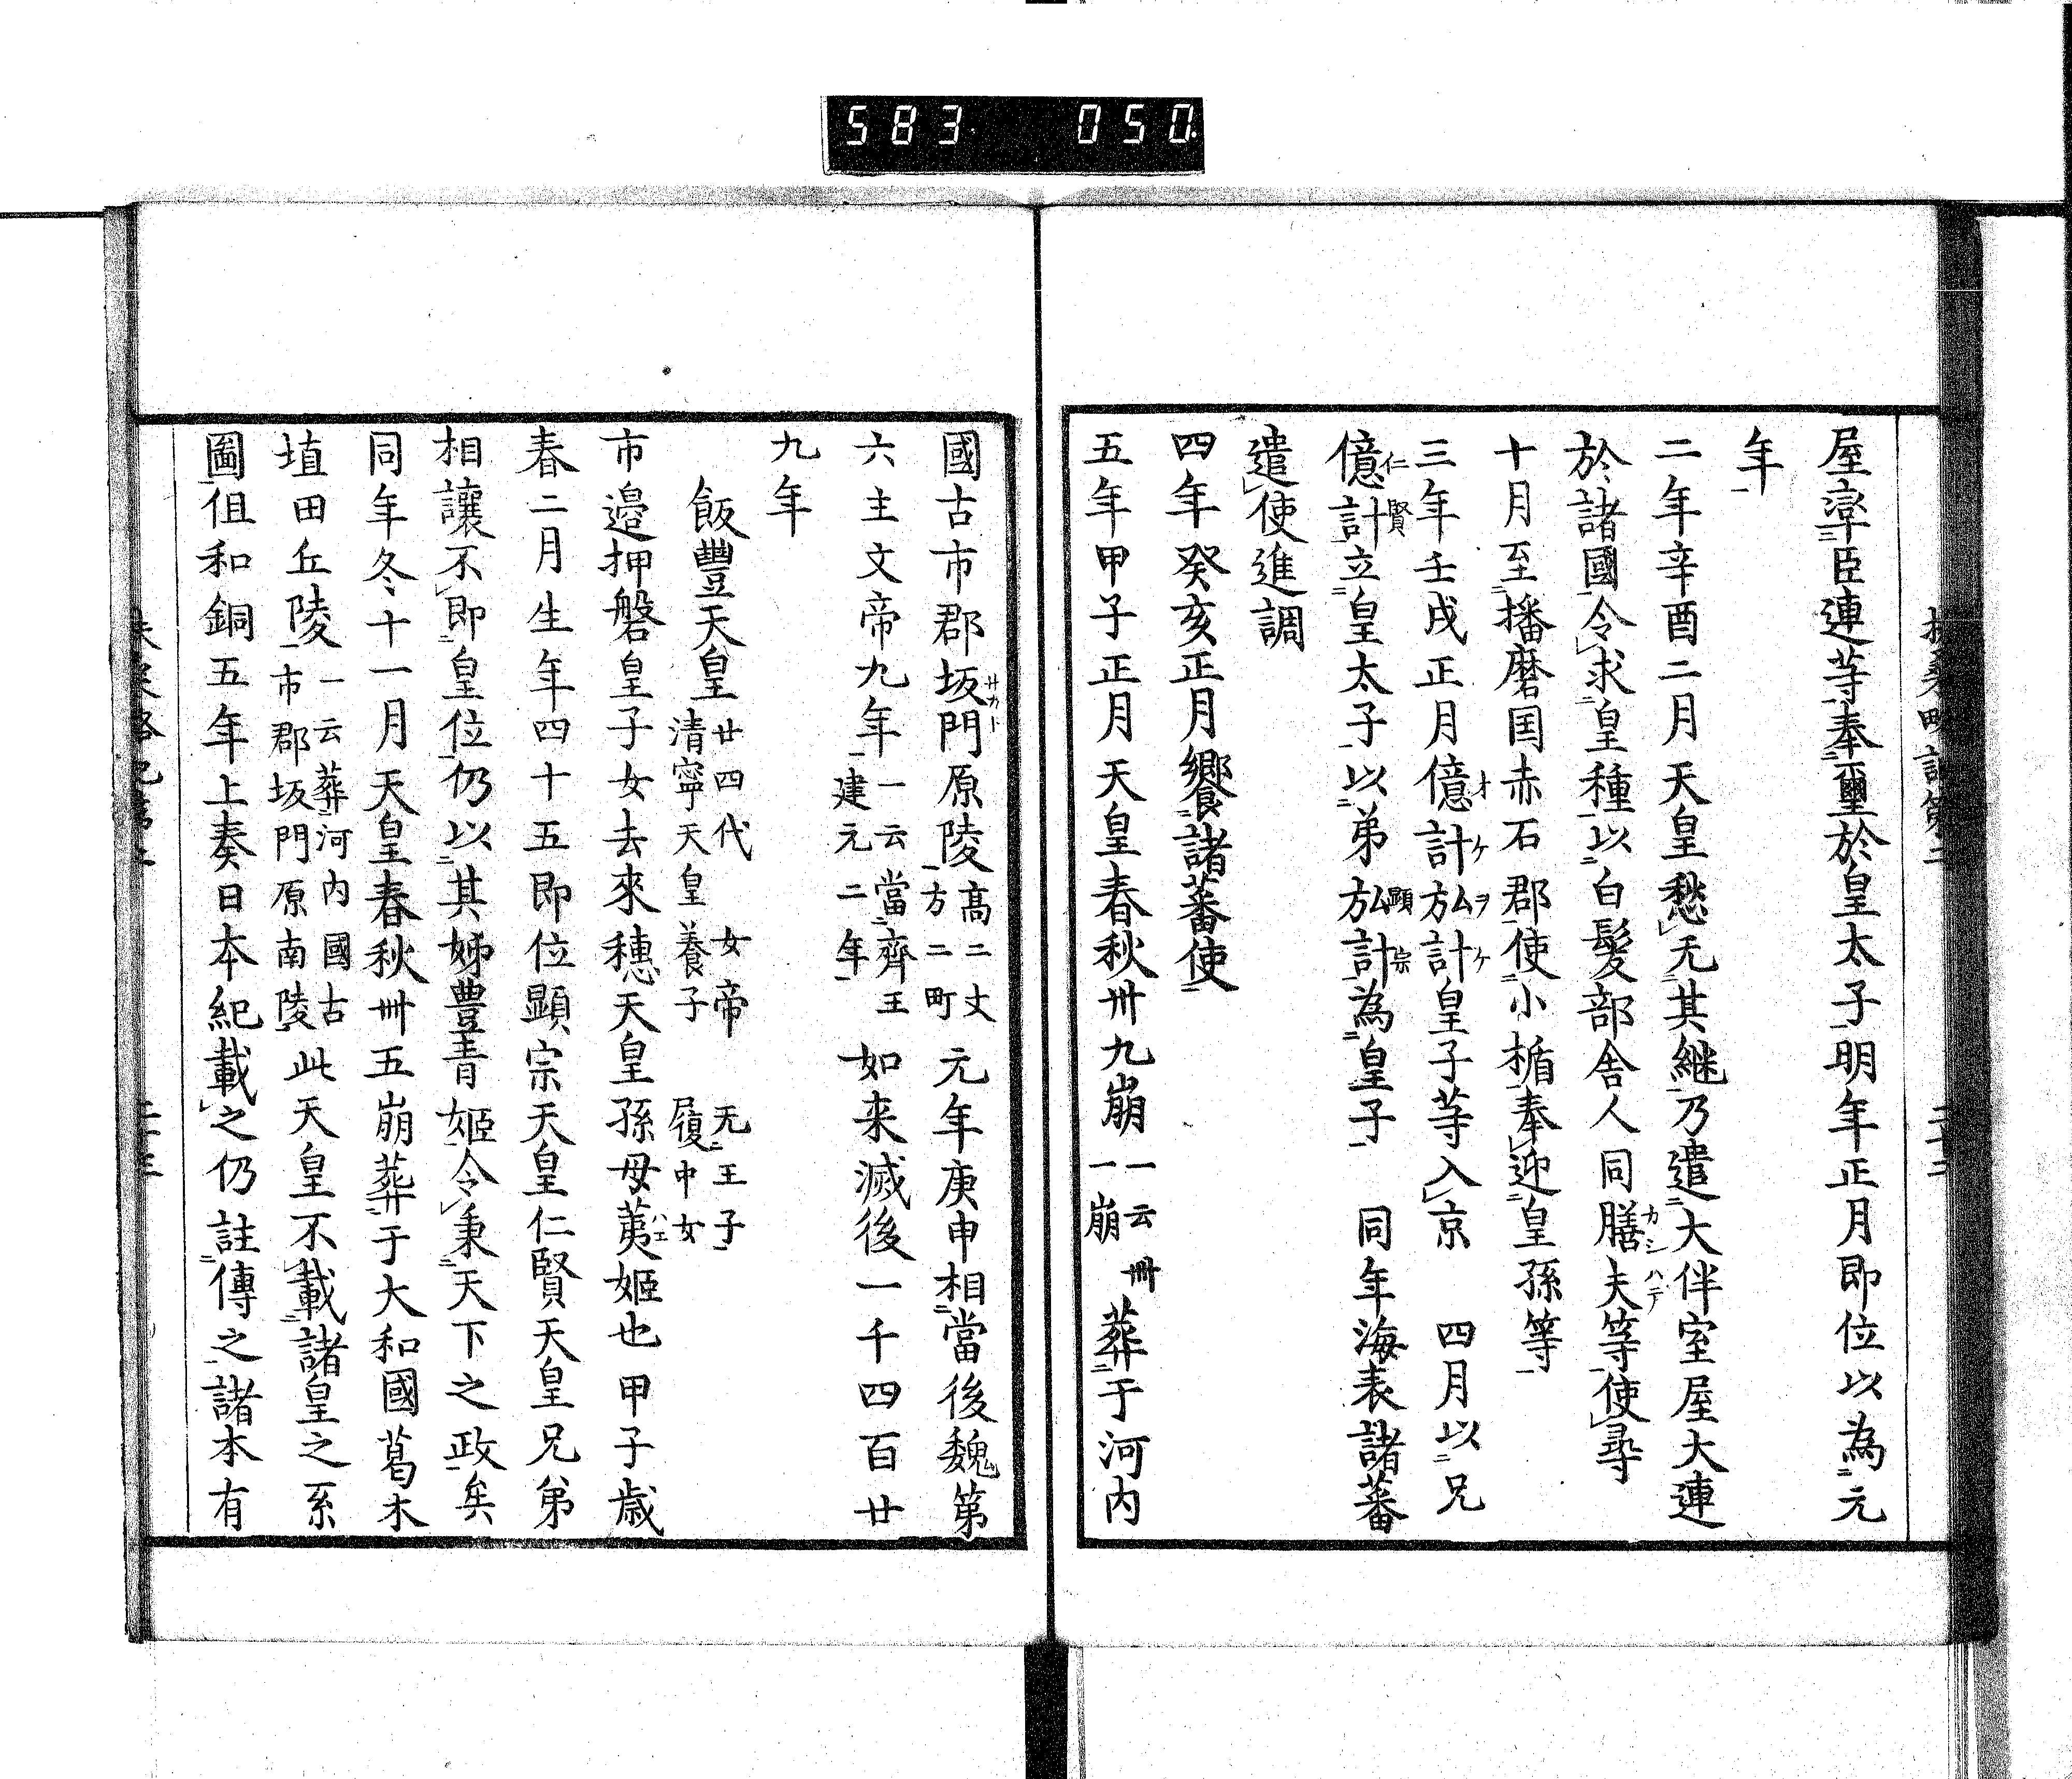 583 050
屋率臣連等奉璽於皇太子明年正月即位以為元
年
二年辛酉二月天皇愁无其継乃遣大伴室屋大連
於諸國令求皇種以白髪部舎人同膳夫等使尋
カシハテ
十月至播磨国赤石郡使小楯奉迎皇孫等
三年壬戌正月億計弘計皇子等入京 四月以兄
オケヲケ
億計立皇太子以弟弘計為皇子 同年海表諸蕃
仁賢 顕宗
遣使進調
四年癸亥正月饗諸蕃使
五年甲子正月天皇春秋卅九崩 一云卌一崩 葬于河内
國古市郡坂門原陵 高二丈方二町 元年庚申相當後魏第
サカト
六主文帝九年 一云當齊王建元二年 如来滅後一千四百廿
九年
飯豐天皇 廿四代 女帝 无王子 清寧天皇養子 履中女
市邉押磐皇子女去來穗天皇孫母荑姬也甲子歳
ハエ
春二月生年四十五即位顕宗天皇仁賢天皇兄弟
相讓不即皇位仍以其姊豊青姬令秉天下之政矣
同年冬十一月天皇春秋卌五崩葬于大和國葛木
埴田丘陵 一云葬河内國古市郡坂門原南陵 此天皇不載諸皇之系
圖但和銅五年上奏日本紀載之仍註傳之諸本有